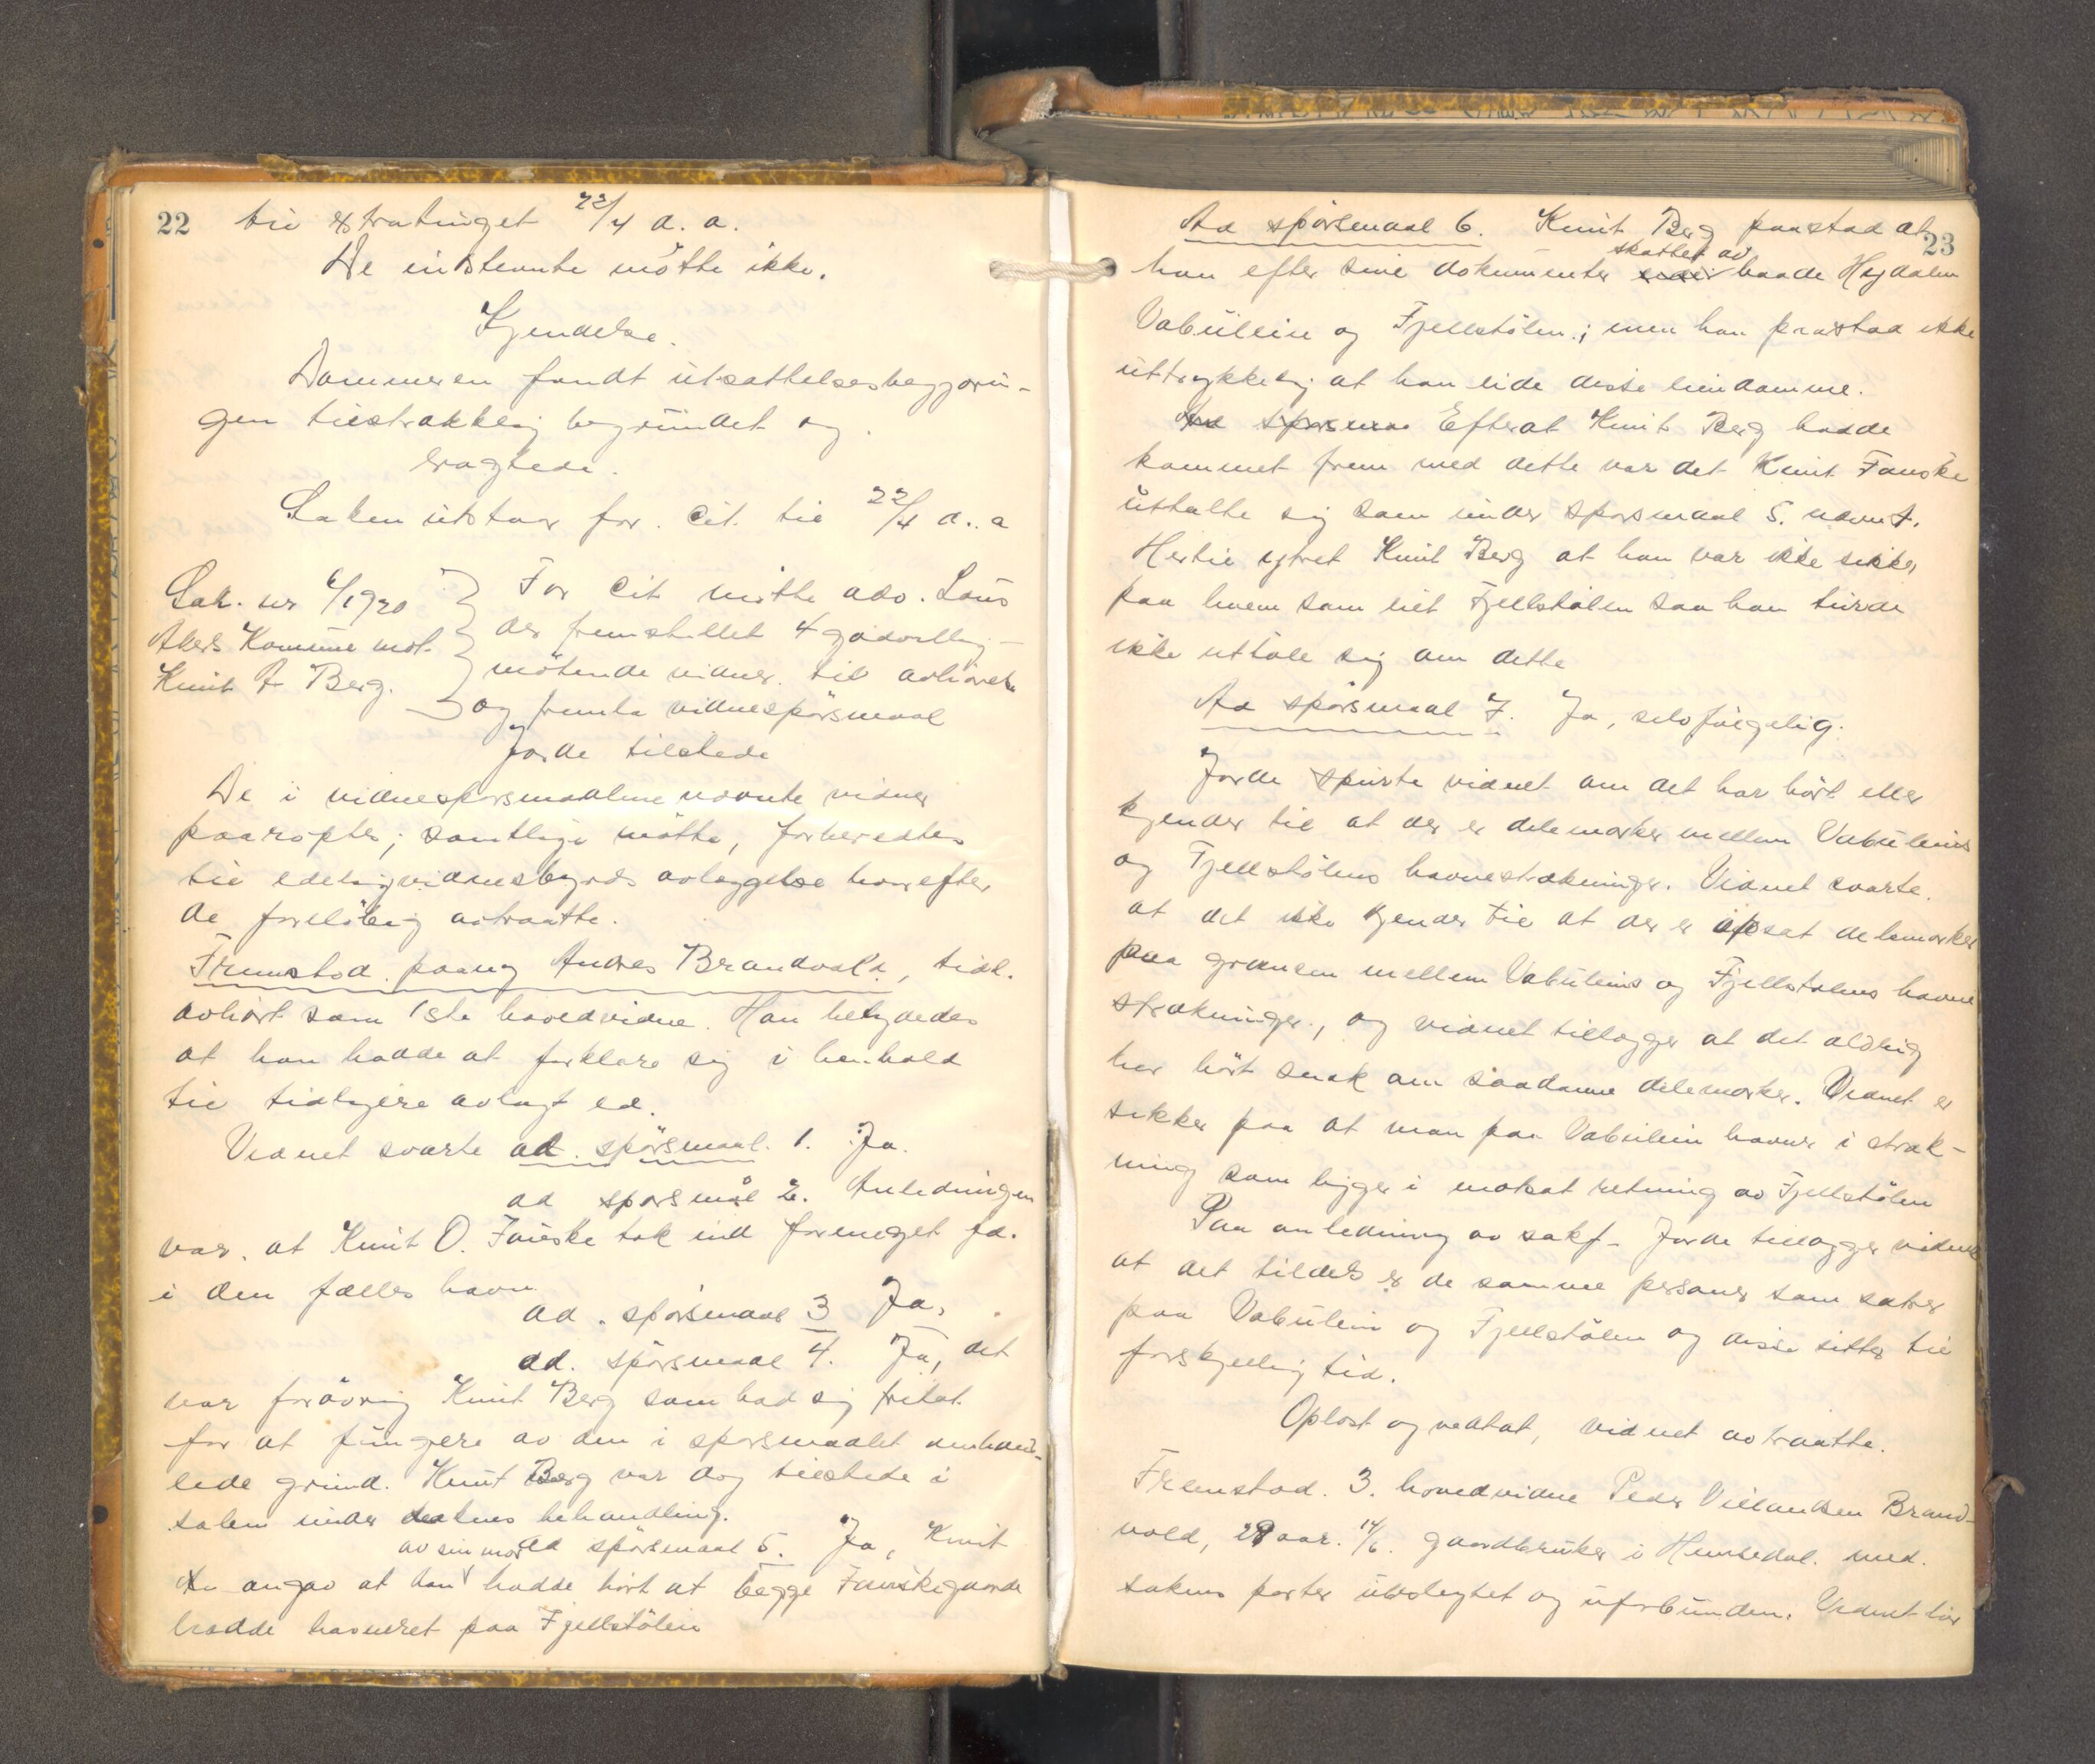 22
til extratinget 22/4 d. a.
De indstevnte mötte ikke.
Kjendelse.
Dommeren fandt utsættelsesbegjærin-
gen tilstrækkelig begrundet og
eragtede.
Saken utstaar for. Cit. til 22/4 d. a
Sak. nr 6/1920
Akers Komune mot.
Knut A Berg.
For Cit mötte adv. Lous
der fremstillet 4 godvillig-
mötende vidner. til avhörelse
og fremla vidnespörsmaal
Jorde tilstede
De i vidnespörsmaalene nævnte vidner
paaroptes; samtlige mötte, forberedtes
til edeligvidnesbyrds avlæggelse hvorefter
de foreløbig avtraatte.
Fremstod paany Andres Brandvold, tidl.
avhört som 1ste hovedvidne. Han betydedes
at han hadde at forklare sig i henhold
til tidligere avlagt ed.
Vidnet svarte ad. spörsmaal. 1. Ja.
ad spörsmål 2. Anledningen
var. at Knut O. Fauske tok ind formeget fæ.
i den fælles havn.
ad. spörsmaal 3 Ja,
ad. spörsmaal 4. Ja, det
var forövrig Knut Berg som bad sig fritat
for at fungere av den i spörsmaalet omhand-
lede grund. Knut Berg var dog tilstede i
salen under sakens behandling.
ad spörsmaal 5. Ja, Knut
av sin mor
angav at han hadde hört at begge Fauskegaarde
hadde havneret paa Fjellstölen
23
Ad spörsmaal 6. Knut Berg paastod at
skattet av
han efter sine dokumenter baade Hydalen
Vabulein og Fjellstölen; men han paastod ikke
uttrykkelig at han eide disse eiendomme.
Ad spörsmaa Efterat Knut Berg hadde
kommet frem med dette var det Knut Fauske
uttalte sig som under spörsmaal 5. nævnt.
Hertil ytret Knut Berg at han var ikke sikker
paa hvem som eiet Fjellstölen saa han turde
ikke uttale sig om dette
Ad spörsmaal 7. Ja, selvfölgelig.
Jorde spurte vidnet om det har hört eller
kjender til at der er delemerker mellem Vabuleins
og Fjellstölens havnestrækninger. Vidnet svarte.
at det ikke kjender til at der er opsat delemerker
paa grænsen mellem Vabuleins og Fjellstølens havne
strækninger., og vidnet tillægger at det aldrig
har hört snak om saadanne delemerker. Vidnet er
sikker paa at man paa Vabulein havner i stræk-
ning som ligger i motsat retning av Fjellstölen
Paa anledning av sakf. Jorde tillægger vidnet
at det tildels er de samme personer som sætrer
paa Vabulein og Fjellstölen og disse sitter til
forskjellig tid.
Oplæst og vedtat, vidnet avtraatte.
Fremstod. 3. hovedvidne Peder Villandsen Brand-
vold, 29 aar. 14/6. gaardbruker i Hemsedal. med.
sakens parter ubeslegtet og uforbunden. Vidnet har